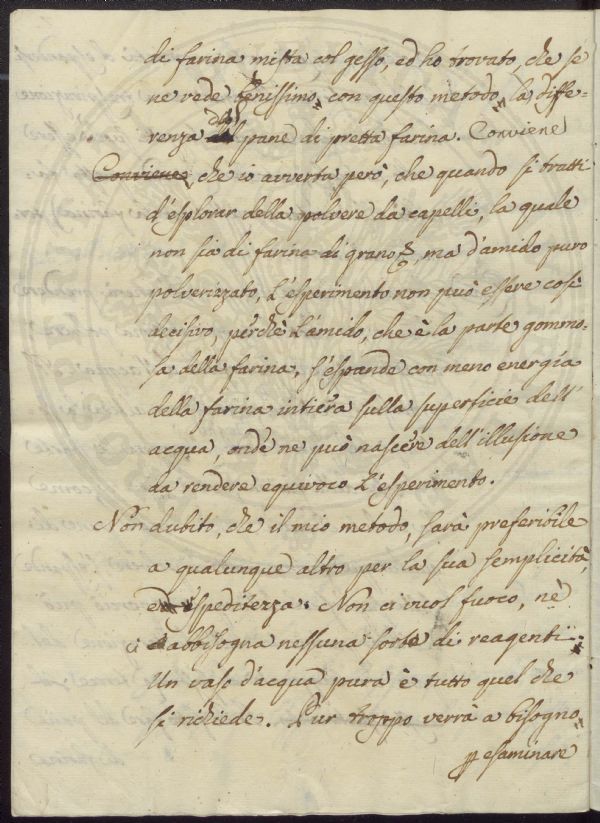 di farina mista col gesso, ed ho trovato, che se
ne vede benissimo, con questo metodo, la diffe-
renza dal pane di pretta farina. Conviene
Conviene, che io avverta però, che quando si tratti
d'esplorar della polvere da capelli, la quale
non sia di farina di grano, ma d'amido puro
polverizzato, l'esperimento non può essere così
decisivo, perchè l'amido, che è la parte gommo-
sa della farina, s'espande con meno energia
della farina intiera sulla superficie dell'
acqua, onde ne può nascere dell'illusione
da rendere equivoco l'esperimento.
Non dubito, che il mio metodo, sarà preferibile
a qualunque altro per la sua semplicità,
e speditezza. Non ci vuol fuoco, nè
ci abbisogna nessuna sorte di reagenti.
Un vaso d'acqua pura è tutto quel che
si richiede. Pur troppo verrà a bisogno
esaminare